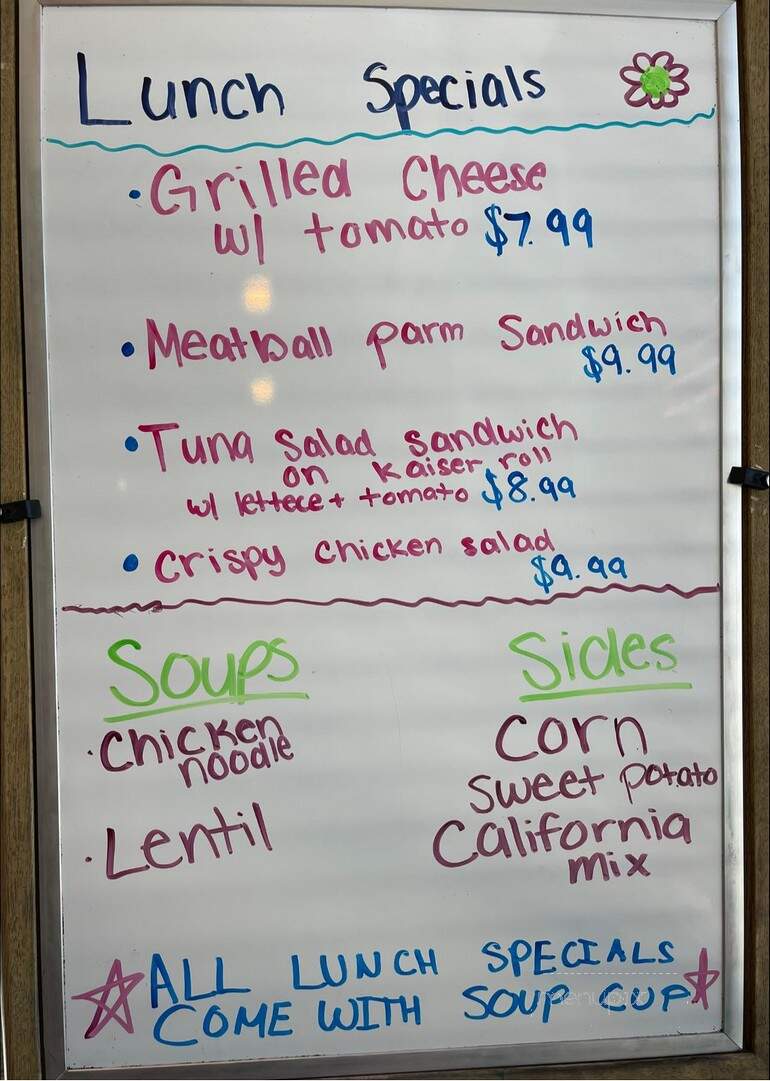 Lunch Specials
• Grilled Cheese
w/ tomato $7.99
• Meatball parm Sandwich
$9.99
• Tuna Salad sandwich
on kaiser roll
w/ lettece + tomato $8.99
• crispy chicken salad
$9.99
Soups
· Chicken
noodle
· Lentil
Sides
Corn
sweet potato
California
mix
ALL LUNCH SPECIALS
COME WITH SOUP CUP